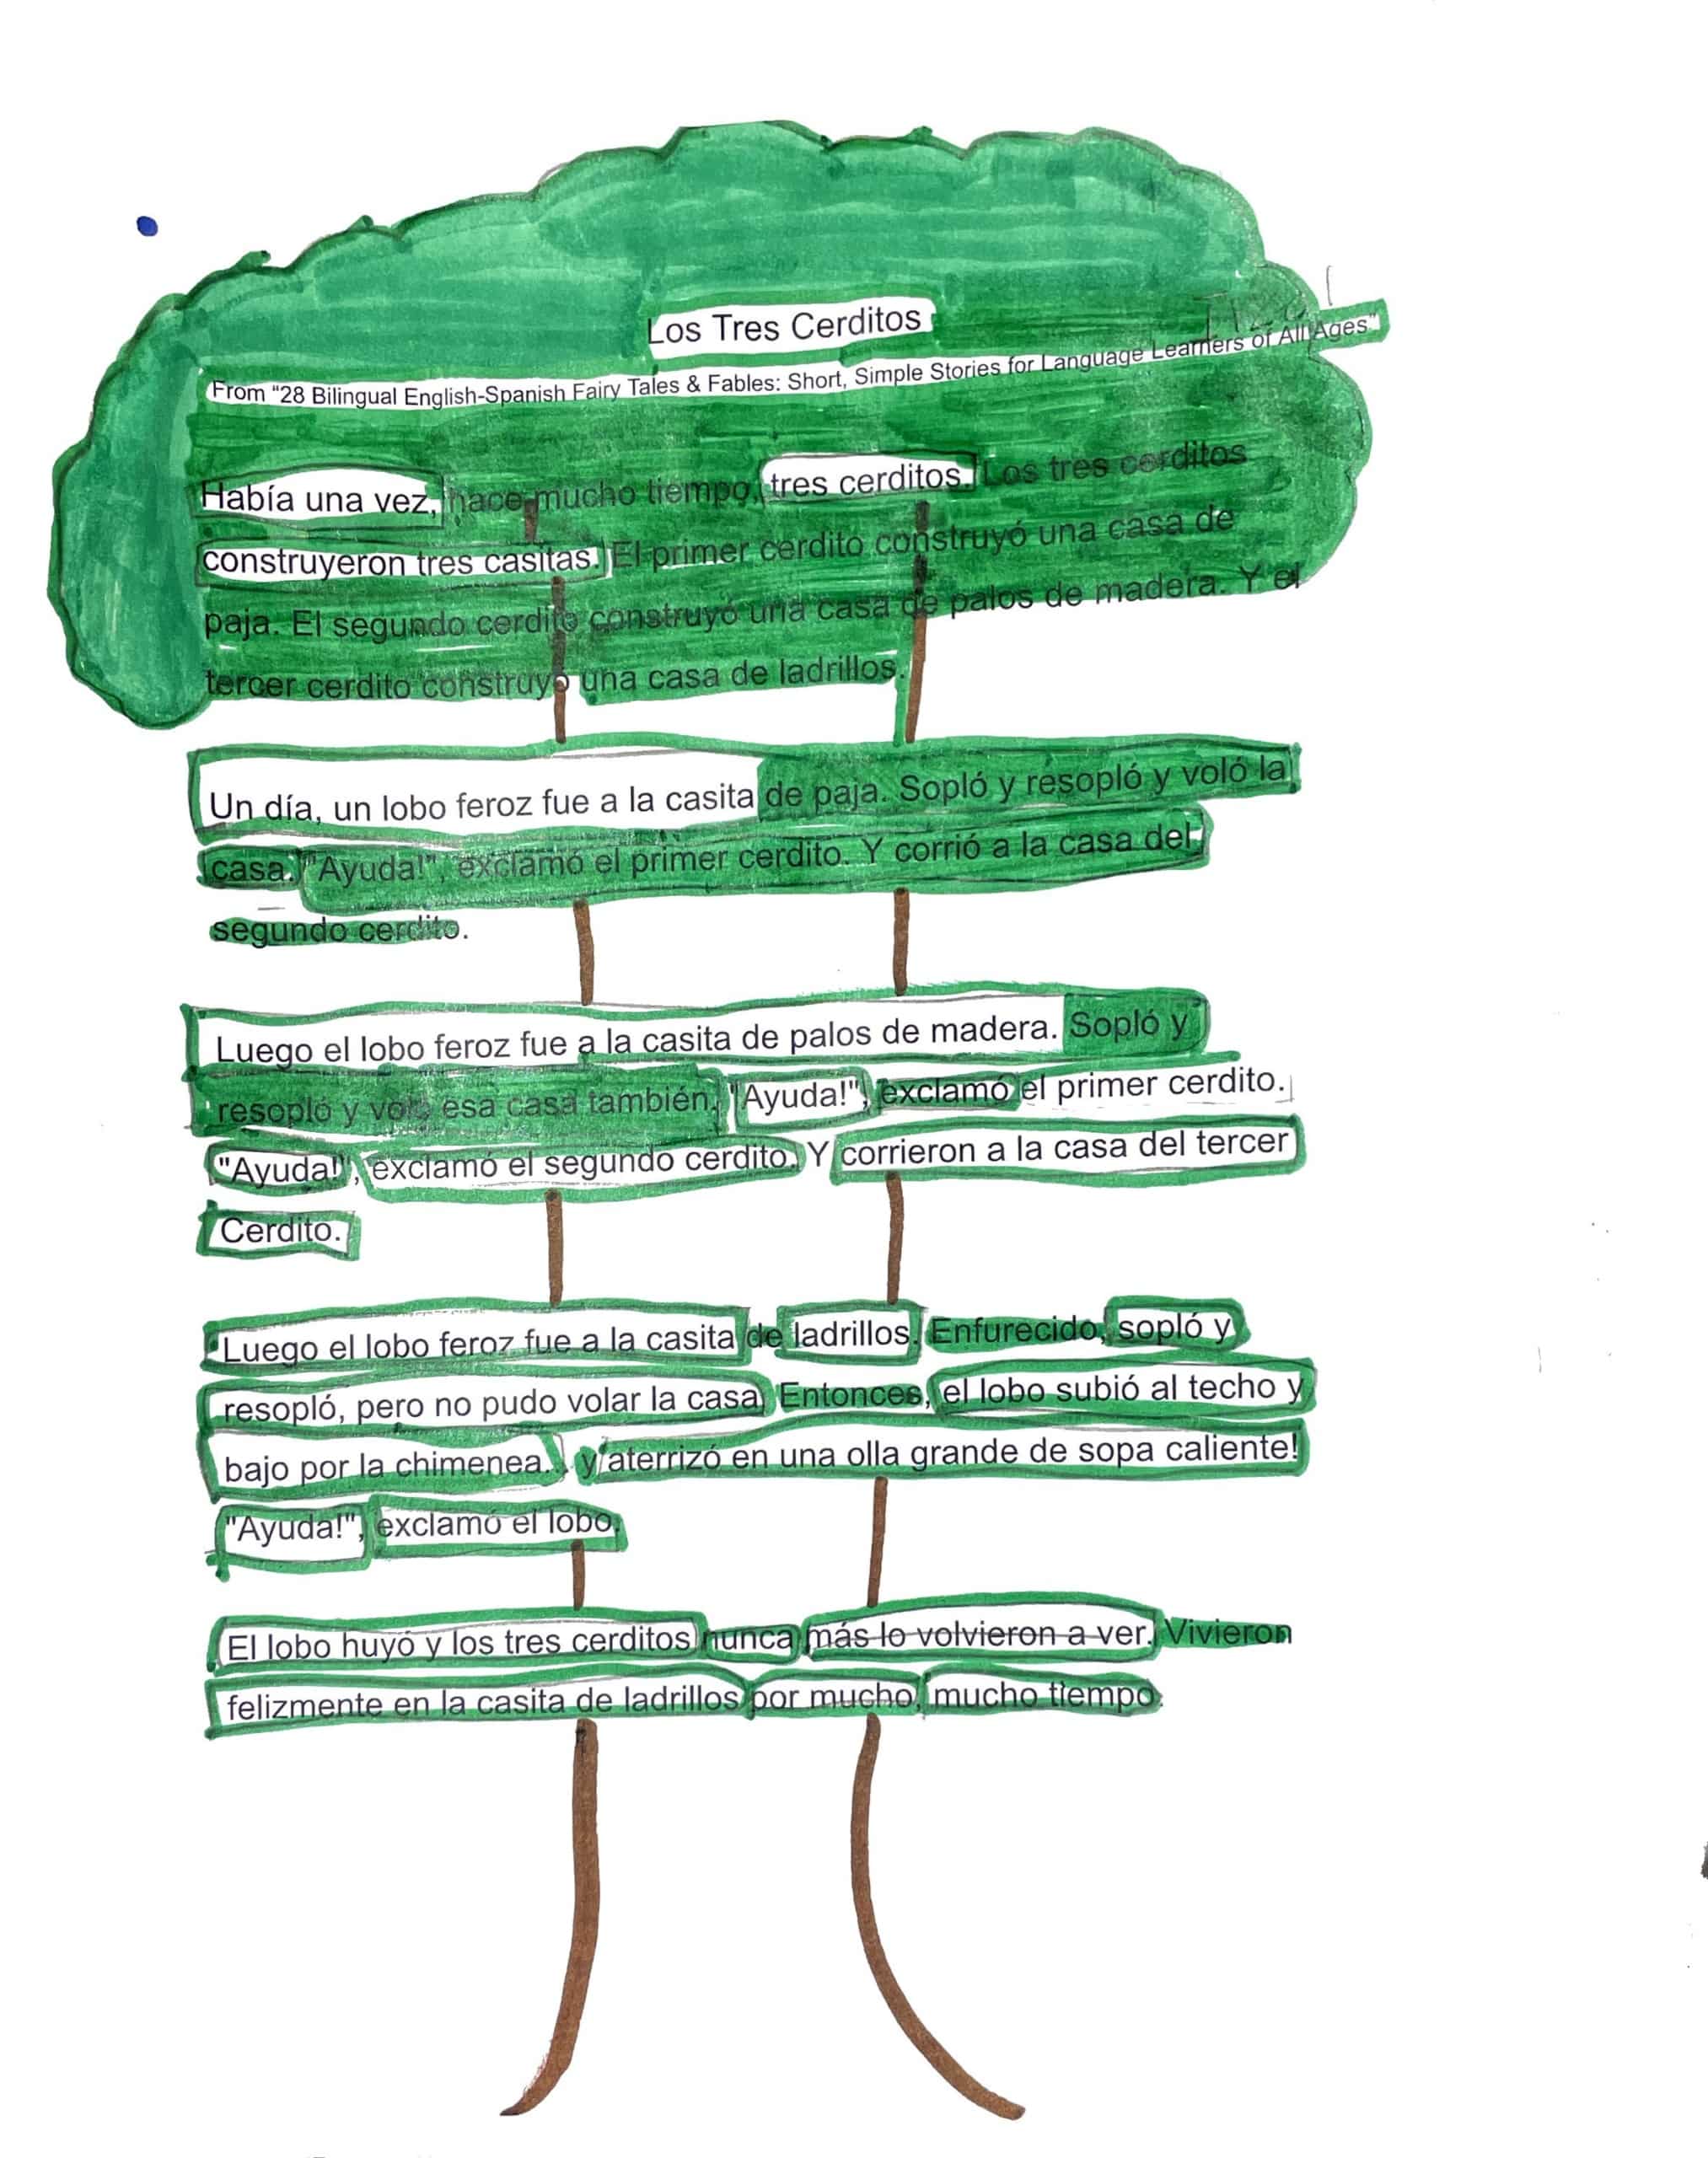 Los Tres Cerditos
From "28 Bilingual English-Spanish Fairy Tales & Fables: Short, Simple Stories for Language Learners of All Ages"
Había una vez, hace mucho tiempo, tres cerditos. Los tres cerditos
construyeron tres casitas. El primer cerdito construyó una casa de
paja. El segundo cerdito construyó una casa de palos de madera. Y el
tercer cerdito construyó una casa de ladrillos.
Un día, un lobo feroz fue a la casita de paja. Sopló y resopló y voló la
casa. "Ayuda!", exclamó el primer cerdito. Y corrió a la casa del
segundo cerdito.
Luego el lobo feroz fue a la casita de palos de madera. Sopló y
resopló y voló esa casa también. "Ayuda!", exclamó el primer cerdito.
"Ayuda!", exclamó el segundo cerdito. Y corrieron a la casa del tercer
Cerdito.
Luego el lobo feroz fue a la casita de ladrillos. Enfurecido, sopló y
resopló, pero no pudo volar la casa. Entonces, el lobo subió al techo y
bajo por la chimenea. y aterrizó en una olla grande de sopa caliente!
"Ayuda!", exclamó el lobo.
El lobo huyó y los tres cerditos nunca más lo volvieron a ver. Vivieron
felizmente en la casita de ladrillos por mucho, mucho tiempo.